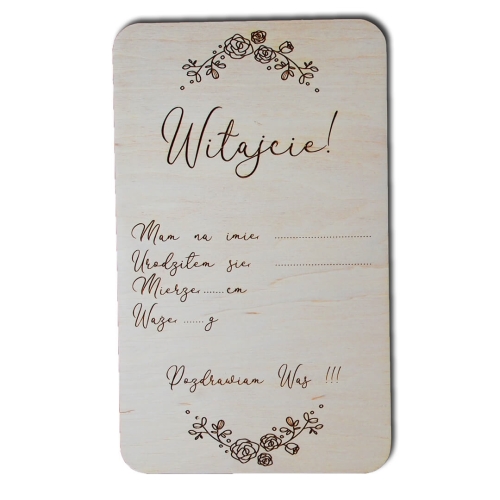 Witajcie!
Mam na imię ..............................
Urodziłem się ..............................
Mierzę ...... cm
Ważę ...... g
Pozdrawiam Was !!!